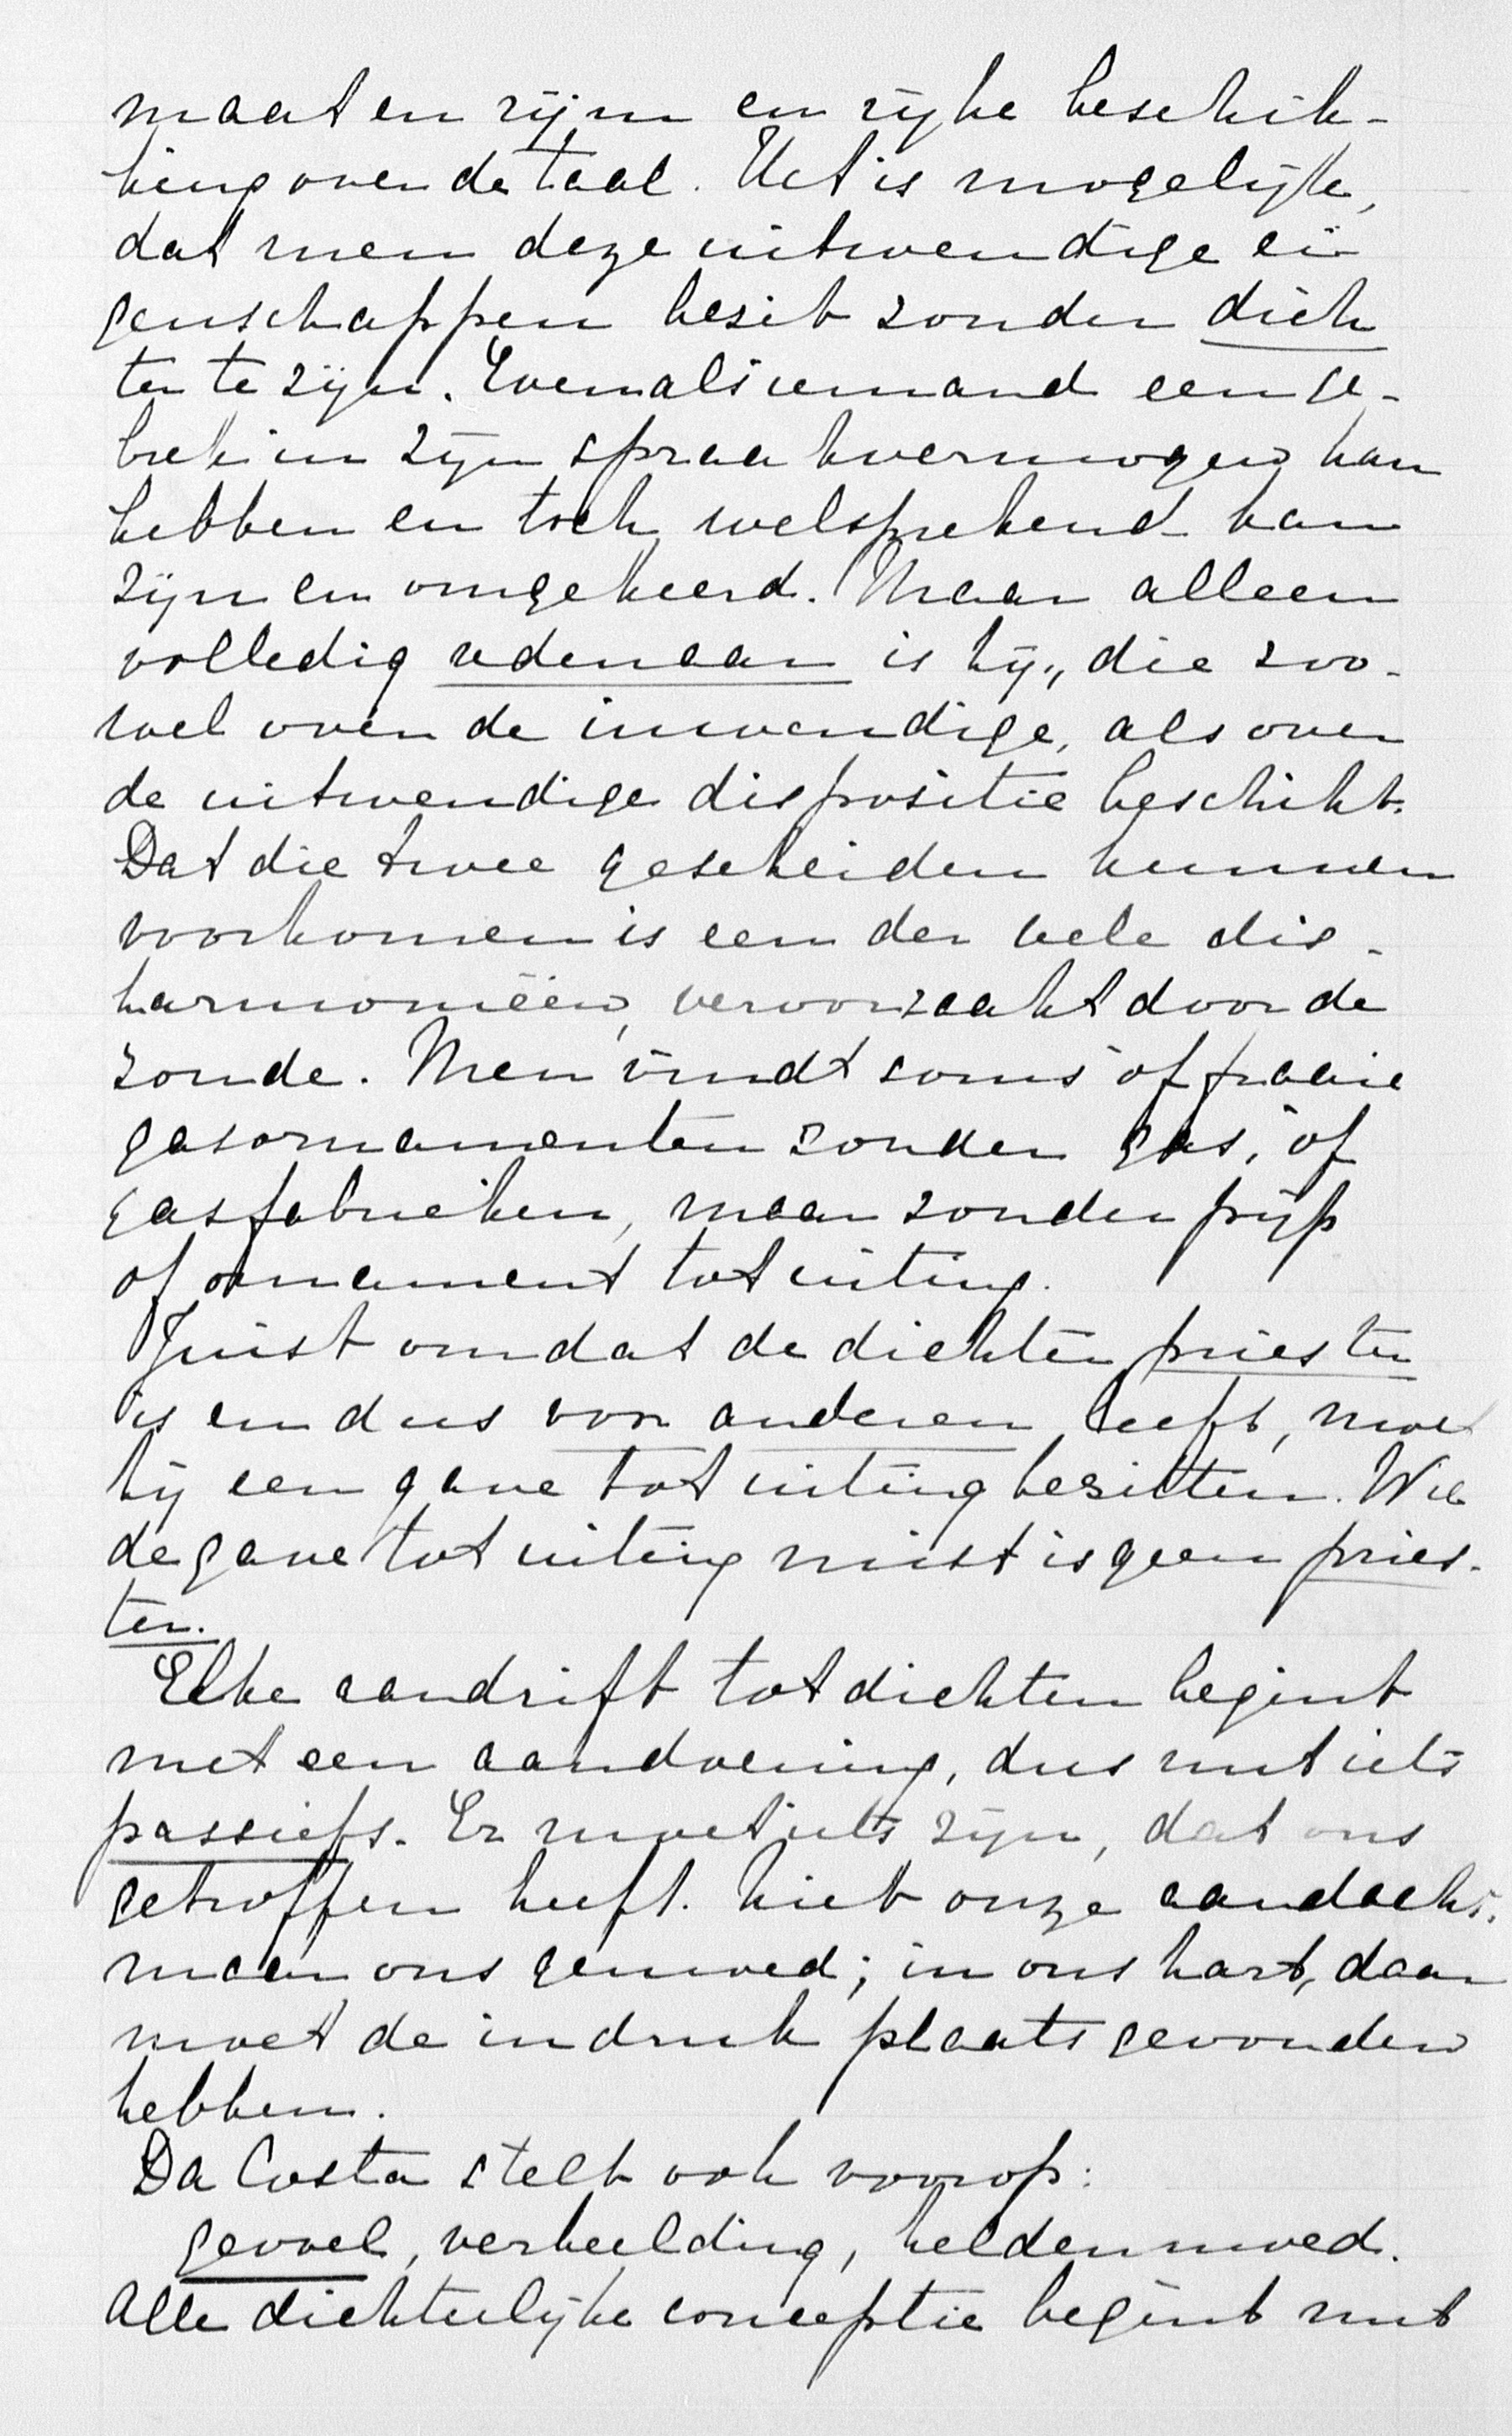 maat en rijm en rijke beschik-
king over de taal. Het is mogelijk,
dat men deze uitwendige ei-
genschappen bezit zonder dich
ter te zijn. Evenals iemand een ge-
brek in zijn spraakvermogen kan
hebben en toch welsprekend kan
zijn en omgekeerd. Maar alleen
volledig redenaar is hij, die zoo-
wel over de inwendige, als over
de uitwendige dispositie beschikt.
Dat die twee gescheiden kunnen
voorkomen is een der vele dis-
harmonieën, veroorzaakt door de
zonde. Men vindt soms òf fraaie
gasornamenten zonder gas, òf
gasfabrieken, maar zonder pijp
of ornament tot uiting.
Juist omdat de dichter priester
is en dus voor anderen leeft, moet
hij een gave tot uiting bezitten. Wie
de gave tot uiting mist is geen pries-
ter.
Elke aandrift tot dichten begint
met een aandoening, dus met iets
passiefs. Er moet iets zijn, dat ons
getroffen heeft. Niet onze aandacht,
maar ons gemoed; in ons hart, daar
moet de indruk plaats gevonden
hebben.
Da Costa stelt ook voorop:
gevoel, verbeelding, heldenmoed.
Alle dichterlijke conceptie begint met